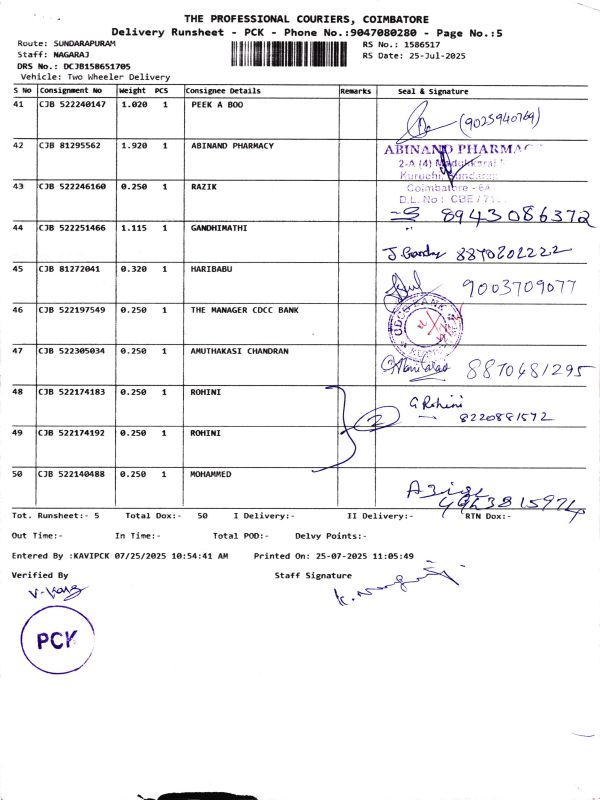 THE PROFESSIONAL COURIERS, COIMBATORE
Delivery Runsheet - PCK - Phone No.:9047080280 - Page No.:5
Route: SUNDARAPURAM
RS No.: 1586517
Staff: NAGARAJ
RS Date: 25-Jul-2025
DRS No.: DCJB158651705
Vehicle: Two Wheeler Delivery
S No Consignment No Weight PCS Consignee Details Remarks Seal & Signature
41 CJB 522240147 1.020 1 PEEK A BOO
(9025940769)
42 CJB 81295562 1.920 1 ABINAND PHARMACY
ABINAND PHARMAC
2-A (4)
Kuruchi, Sundara
43 CJB 522246160 0.250 1 RAZIK
Coimbatore - 64
D.L. No: CBE/71
8943086372
44 CJB 522251466 1.115 1 GANDHIMATHI
8870202222
45 CJB 81272041 0.320 1 HARIBABU
9003709077
46 CJB 522197549 0.250 1 THE MANAGER CDCC BANK
47 CJB 522305034 0.250 1 AMUTHAKASI CHANDRAN
8870481295
48 CJB 522174183 0.250 1 ROHINI
2
G Rohini
8220881572
49 CJB 522174192 0.250 1 ROHINI
50 CJB 522140488 0.250 1 MOHAMMED
Tot. Runsheet:- 5 Total Dox:- 50 I Delivery:- II Delivery:- RTN Dox:-
Out Time:- In Time:- Total POD:- Delvy Points:-
Entered By :KAVIPCK 07/25/2025 10:54:41 AM Printed On: 25-07-2025 11:05:49
Verified By
Staff Signature
PCK